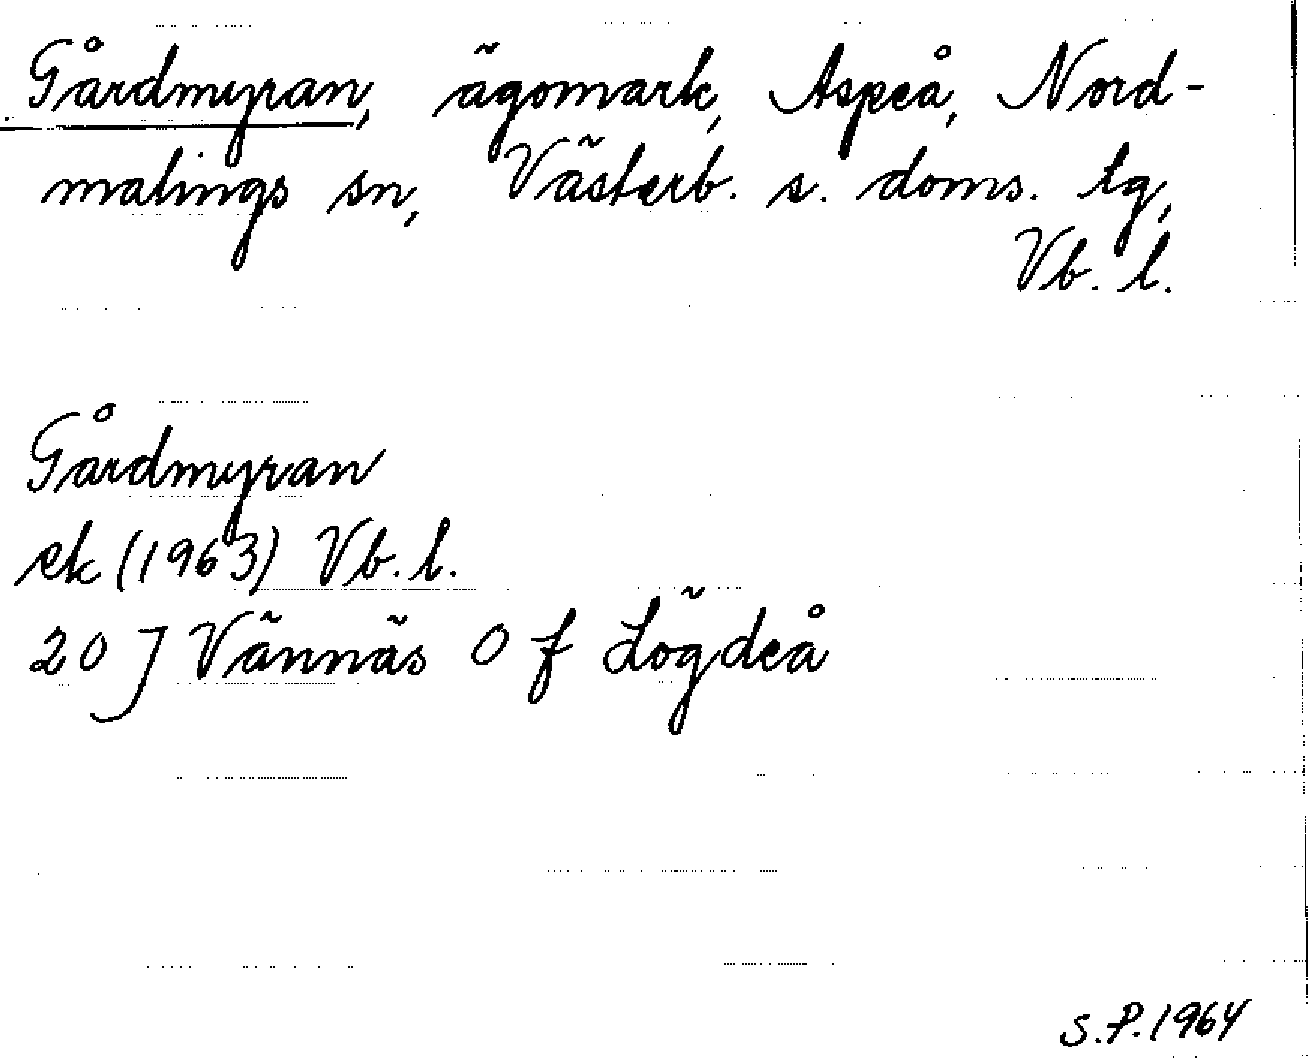 Gårdmyran, ägomark, Aspeå, Nord-
malings sn, Västerb. s. doms. tg,
Vb. l.
Gårdmyran
ek (1963) Vb. l.
20 J Vännäs O f Lögdeå
S.P. 1964